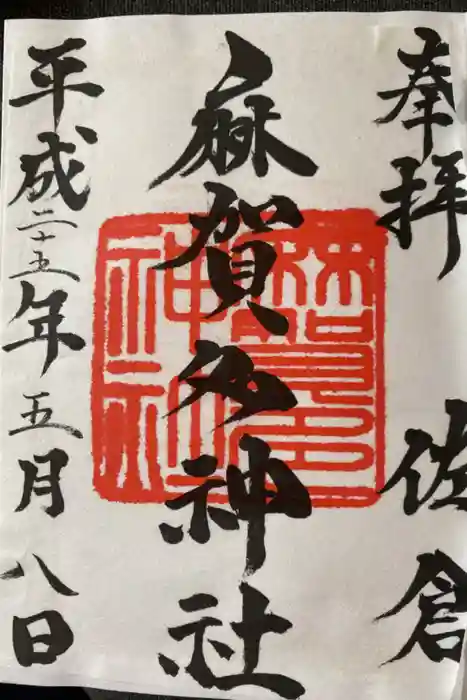 奉拝
佐倉
麻賀多神社
平成二十五年五月八日
麻賀多
神社